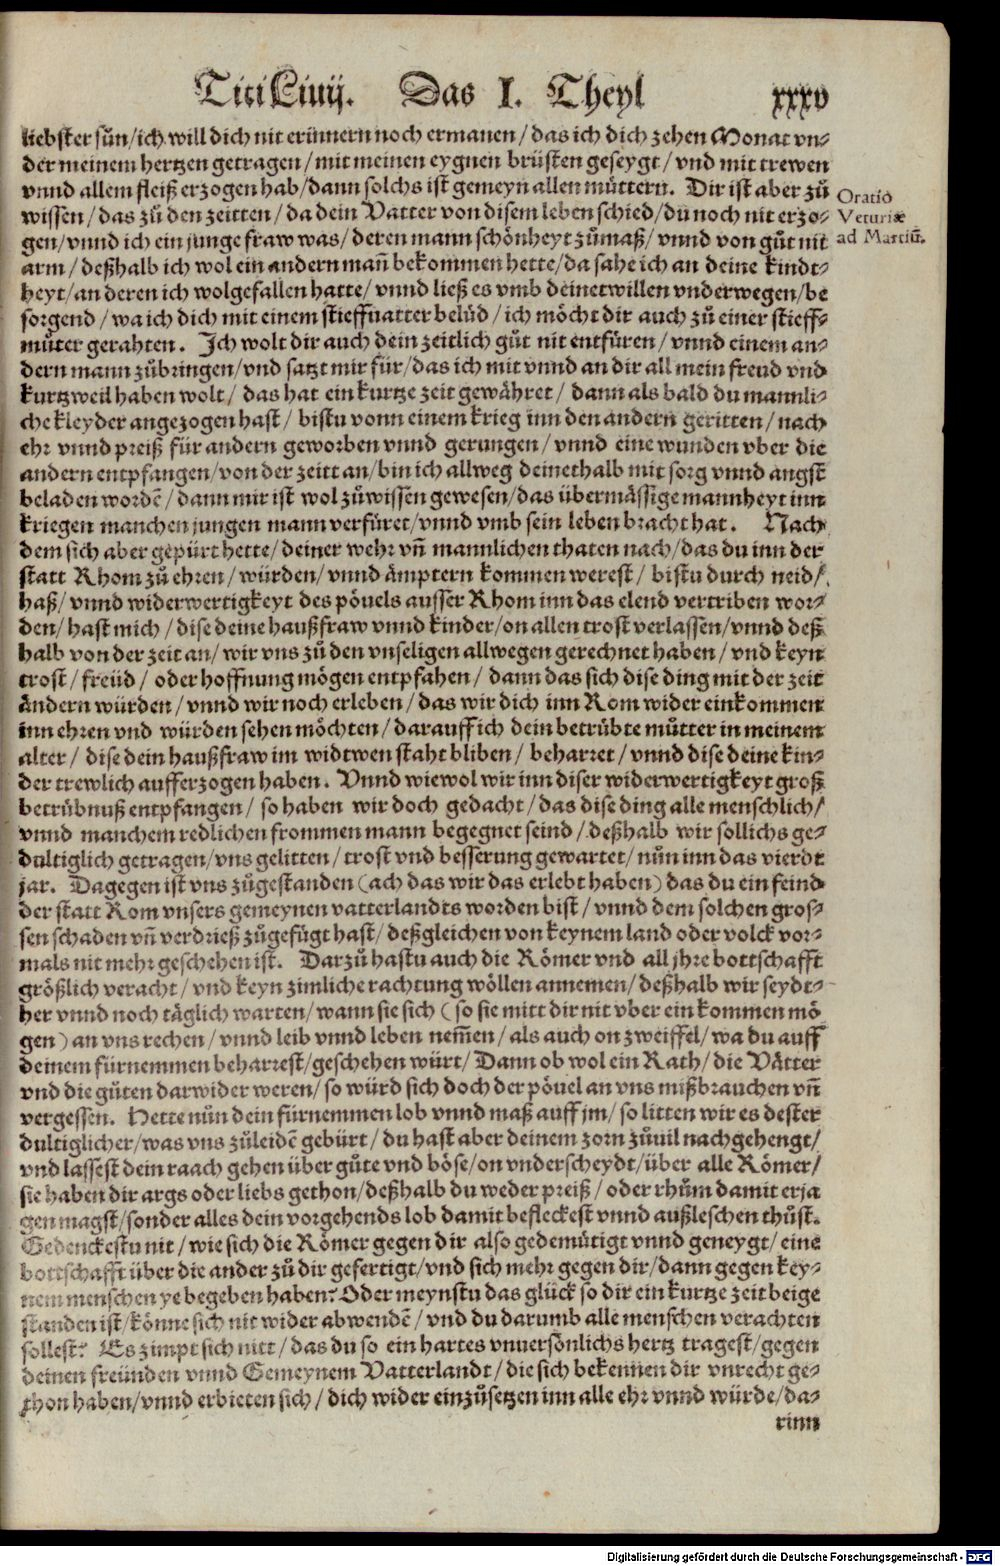 Titi Liuij. Das I. Theyl xxxv
liebster sůn/ich will dich nit erinnern noch ermanen/das ich dich zehen Monat vn⸗
der meinem hertzen getragen/mit meinen eygnen brüsten geseygt/vnd mit trewen
vnnd allem fleiß erzogen hab/dann solchs ist gemeyn allen müttern. Dir ist aber zů
wissen/das zů den zeitten/da dein Vatter von disem leben schied/du noch nit erzo⸗
gen/vnnd ich ein junge fraw was/deren mann schönheyt zůmaß/vnnd von gůt nit
arm/deßhalb ich wol ein andern mañ bekommen hette/da sahe ich an deine kindt⸗
heyt/an deren ich wolgefallen hatte/vnnd ließ es vmb deinetwillen vnderwegen/be
sorgend/wa ich dich mit einem stieffuatter belůd/ich möcht dir auch zů einer stieff⸗
můter gerahten. Ich wolt dir auch dein zeitlich gůt nit entfüren/vnnd einem an⸗
dern mann zůbringen/vnd satzt mir für/das ich mit vnnd an dir all mein freud vnd
kurtzweil haben wolt/das hat ein kurtze zeit gewähret/dann als bald du mannli⸗
che kleyder angezogen hast/bistu vonn einem krieg inn den andern geritten/nach
ehr vnnd preiß für andern geworben vnnd gerungen/vnnd eine wunden vber die
andern entpfangen/von der zeitt an/bin ich allweg deinethalb mit sorg vnnd angst
beladen wordē/dann mir ist wol zůwissen gewesen/das übermässige mannheyt inn
kriegen manchen jungen mann verfüret/vnnd vmb sein leben bracht hat. Nach
dem sich aber gepürt hette/deiner wehr vñ mannlichen thaten nach/das du inn der
statt Rhom zů ehren/würden/vnnd ämptern kommen werest/bistu durch neid/
haß/vnnd widerwertigkeyt des pövels ausser Rhom inn das elend vertriben wor⸗
den/hast mich/dise deine haußfraw vnnd kinder/on allen trost verlassen/vnnd deß
halb von der zeit an/wir vns zů den vnseligen allwegen gerechnet haben/vnd keyn
trost/freüd/oder hoffnung mögen entpfahen/dann das sich dise ding mit der zeit
ändern würden/vnnd wir noch erleben/das wir dich inn Rom wider einkommen
inn ehren vnd würden sehen möchten/darauff ich dein betrübte můtter in meinem
alter/dise dein haußfraw im widtwen staht bliben/beharret/vnnd dise deine kin⸗
der trewlich aufferzogen haben. Vnnd wiewol wir inn diser widerwertigkeyt groß
betrübnuß entpfangen/so haben wir doch gedacht/das dise ding alle menschlich/
vnnd manchem redlichen frommen mann begegnet seind/deßhalb wir sollichs ge⸗
dultiglich getragen/vns gelitten/trost vnd besserung gewartet/nůn inn das vierdt
jar. Dagegen ist vns zůgestanden (ach das wir das erlebt haben) das du ein feind
der statt Rom vnsers gemeynen vatterlandts worden bist/vnnd dem solchen gros⸗
sen schaden vñ verdrieß zůgefügt hast/deßgleichen von keynem land oder volck vor⸗
mals nit mehr geschehen ist. Darzů hastu auch die Römer vnd all jhre bottschafft
größlich veracht/vnd keyn zimliche rachtung wöllen annemen/deßhalb wir seydt⸗
her vnnd noch täglich warten/wann sie sich (so sie mitt dir nit vber ein kommen mö
gen) an vns rechen/vnnd leib vnnd leben nem̃en/als auch on zweiffel/wa du auff
deinem fürnemmen beharrest/geschehen würt/Dann ob wol ein Rath/die Vätter
vnd die gůten darwider weren/so würd sich doch der pövel an vns mißbrauchen vñ
vergessen. Hette nůn dein fürnemmen lob vnnd maß auff jm/so litten wir es dester
dultiglicher/was vns zůleidē gebürt/du hast aber deinem zorn zůuil nachgehengt/
vnd lassest dein raach gehen über gůte vnd böse/on vnderscheydt/über alle Römer/
sie haben dir args oder liebs gethon/deßhalb du weder preiß/oder rhům damit erja
gen magst/sonder alles dein vorgehends lob damit befleckest vnnd außleschen thůst.
Gedenckestu nit/wie sich die Römer gegen dir also gedemütigt vnnd geneygt/eine
bottschafft über die ander zů dir gefertigt/vnd sich mehr gegen dir/dann gegen key⸗
nem menschen ye begeben haben? Oder meynstu das glück so dir ein kurtze zeit beige
standen ist/könne sich nit wider abwendē/vnd du darumb alle menschen verachten
sollest? Es zimpt sich nitt/das du so ein hartes vnuersönlichs hertz tragest/gegen
deinen freünden vnnd Gemeynem Vatterlandt/die sich bekennen dir vnrecht ge⸗
thon haben/vnnd erbieten sich/dich wider einzůsetzen inn alle ehr vnnd würde/da⸗
rinn
Oratio
Veturiæ
ad Martiũ.
Digitalisierung gefördert durch die Deutsche Forschungsgemeinschaft - DFG